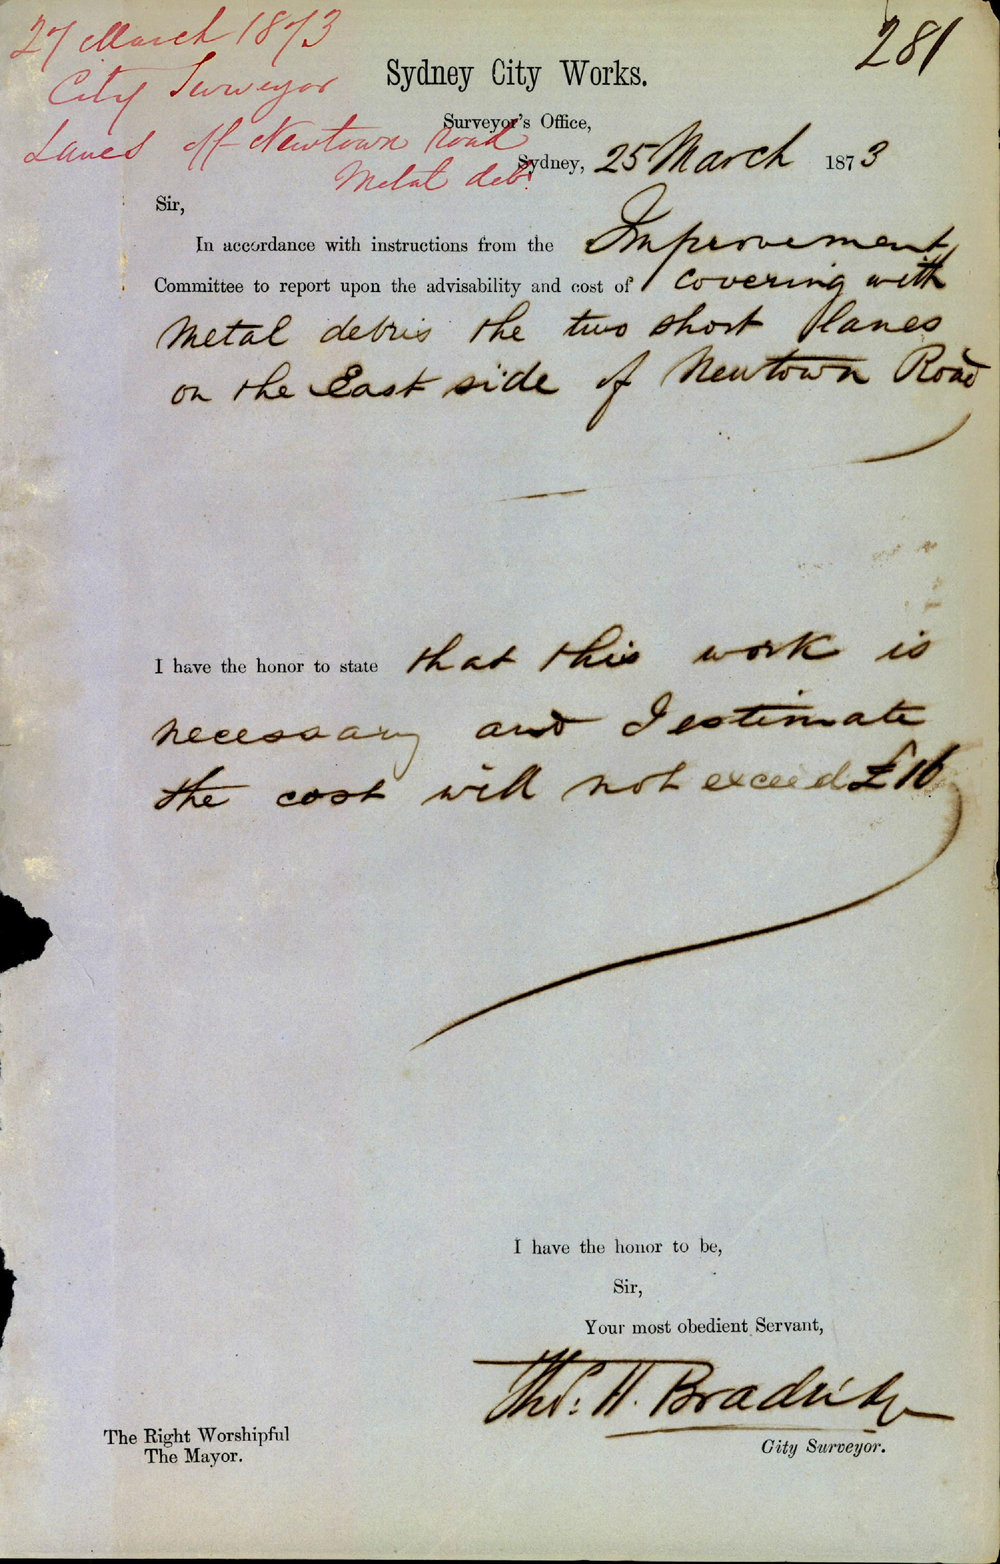 27 March 1873
City Surveyor
Lanes off Newtown Road
Metal deb.
281
Sydney City Works.
Surveyor's Office,
Sydney, 25 March 1873
Sir,
In accordance with instructions from the Improvement
Committee to report upon the advisability and cost of covering with
Metal debris the two short lanes
on the East side of Newtown Road
I have the honor to state that this work is
necessary and I estimate
the cost will not exceed £16
I have the honor to be,
Sir,
Your most obedient Servant,
Thos. H. Bradridge
City Surveyor.
The Right Worshipful
The Mayor.